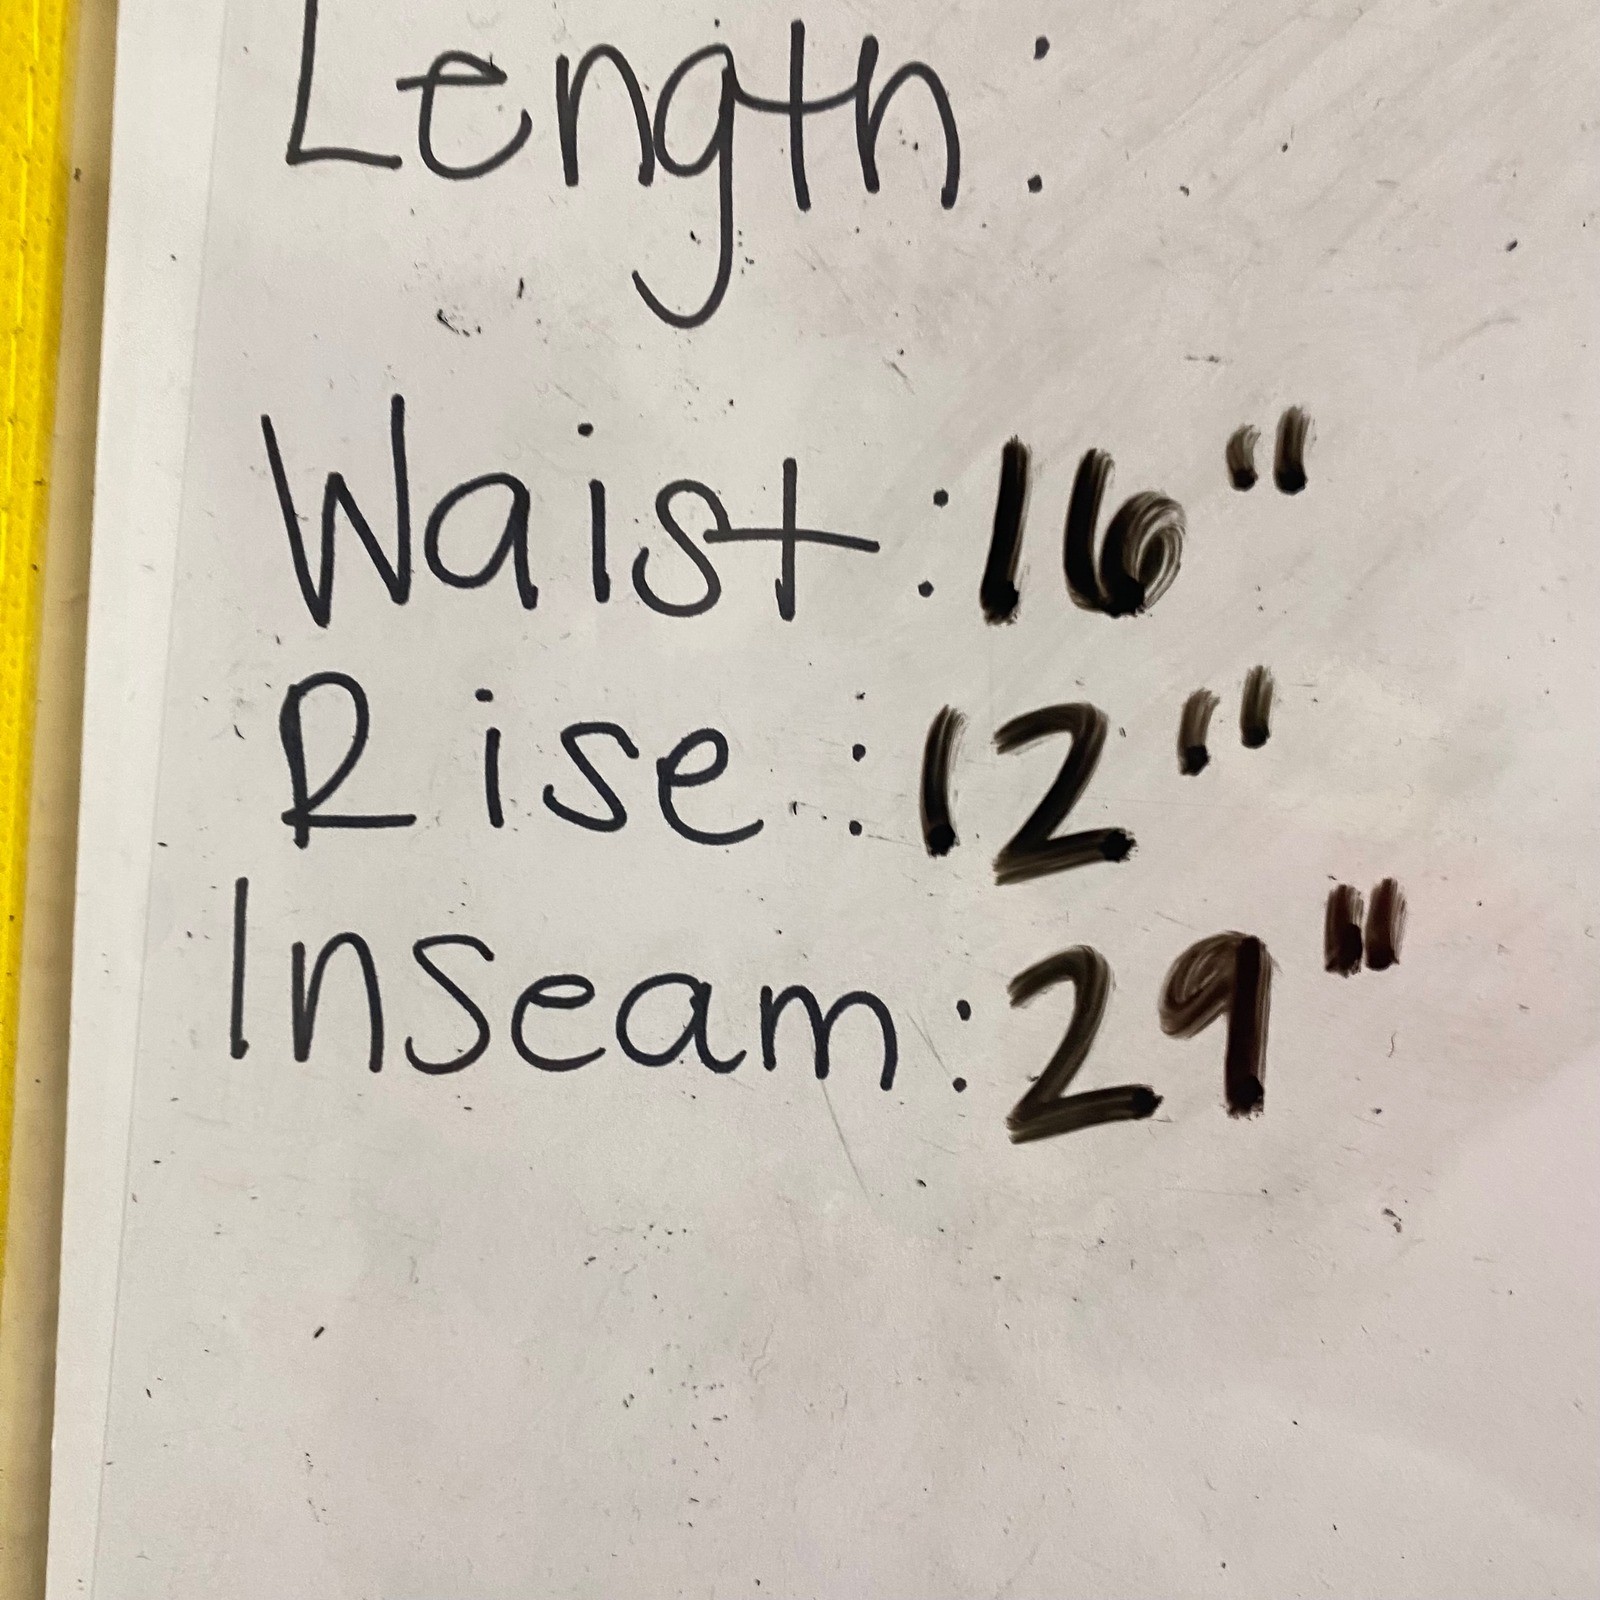 Length:
Waist: 16"
Rise: 12"
Inseam: 29"